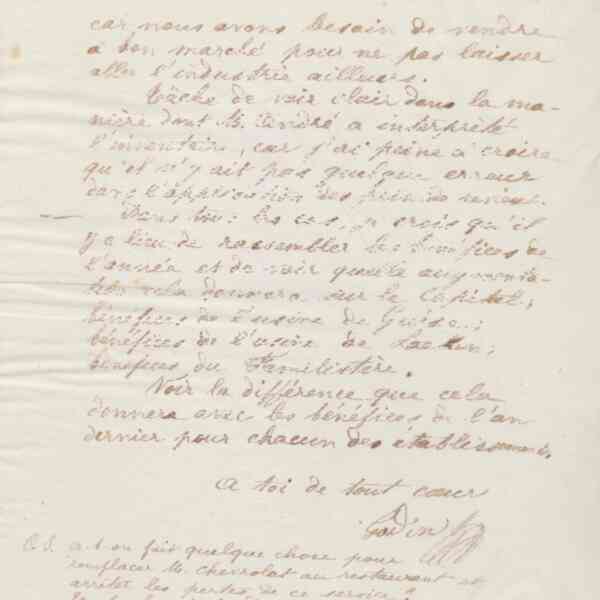 car nous avons besoin de vendre
à bon marché pour ne pas laisser
aller l'industrie ailleurs.
Tâche de voir clair dans la ma-
nière dont M. André a interprété
l'inventaire, car j'ai peine à croire
qu'il n'y ait pas quelque erreur
dans l'appréciation des prix de revient.
Dans tous les cas, je crois qu'il
y a lieu de rassembler les bénéfices de
l'année et de voir quelle augmenta-
tion cela donnera sur le capital;
bénéfices de l'usine de Guise;
bénéfices de l'usine de Laeken;
bénéfices du Familistère.
Voir la différence que cela
donnera avec les bénéfices de l'an
dernier pour chacun des établissements.
A toi de tout cœur
Godin
P.S. a-t-on fait quelque chose pour
remplacer M. Chevrolat au restaurant et
arrêter les pertes de ce service ?